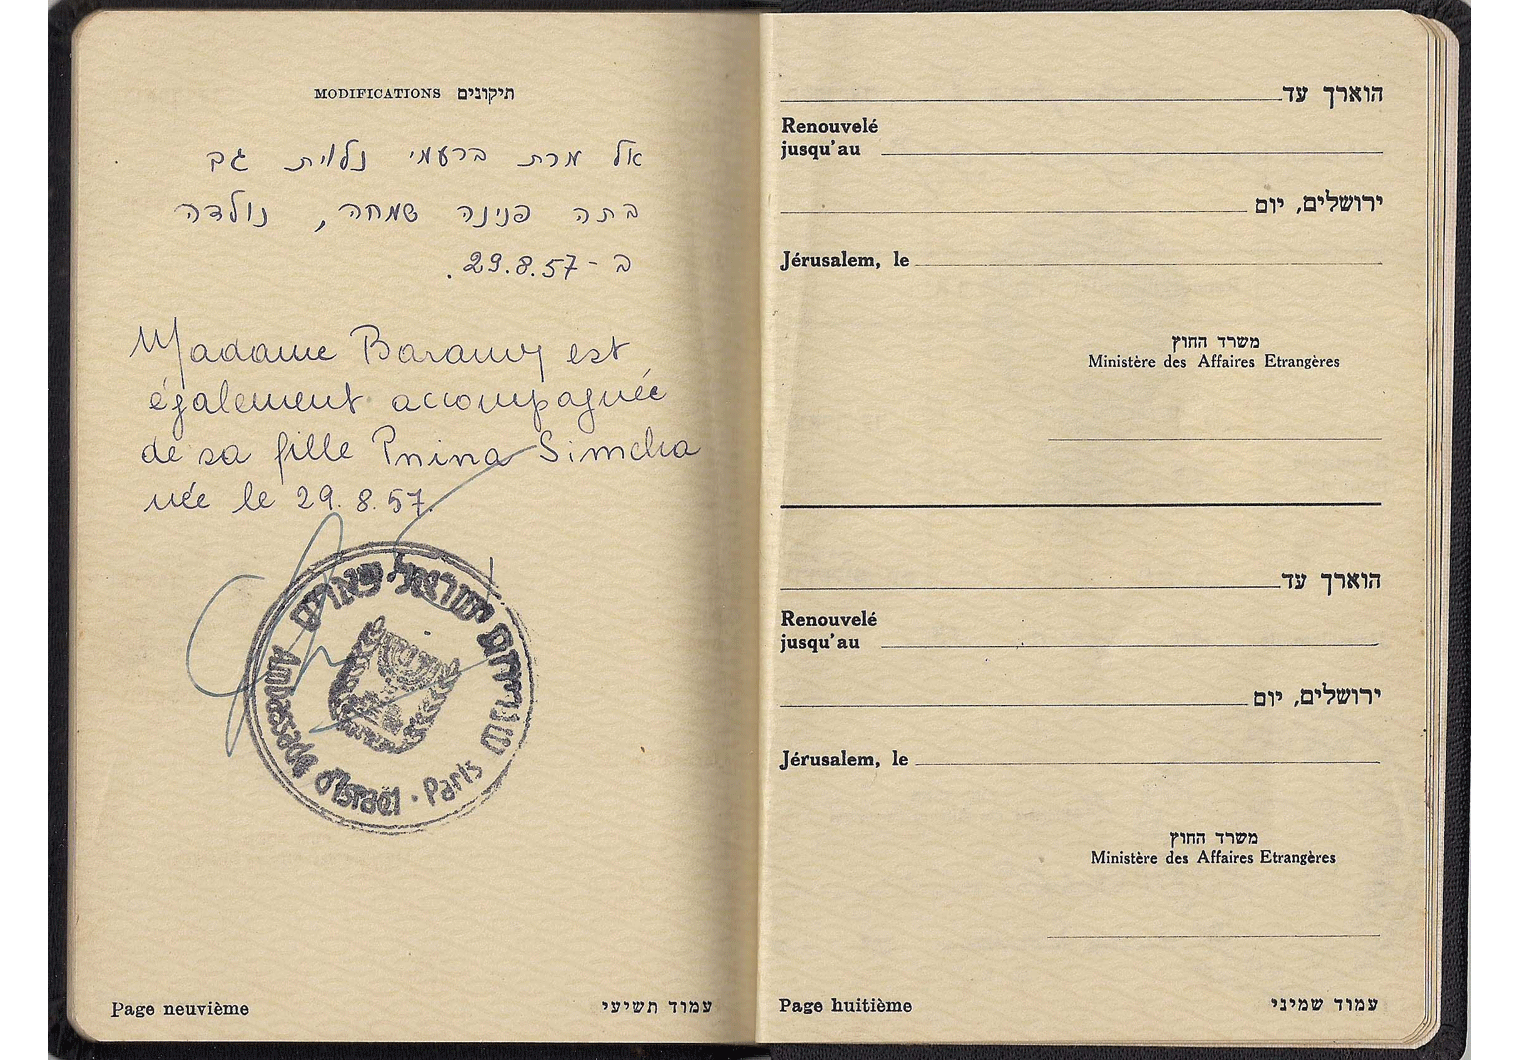 MODIFICATIONS תיקונים
אל מרת ברעמי נלוית גם
בתה פנינה שמחה, נולדה
ב-29.8.57.
Madame Baramy est
également accompagnée
de sa fille Pnina Simcha
née le 29.8.57.
שגרירות ישראל פאריס
Ambassade d'Israël · Paris
Page neuvième עמוד תשיעי
הוארך עד
Renouvelé
jusqu'au
ירושלים, יום
Jérusalem, le
משרד החוץ
Ministère des Affaires Etrangères
הוארך עד
Renouvelé
jusqu'au
ירושלים, יום
Jérusalem, le
משרד החוץ
Ministère des Affaires Etrangères
Page huitième עמוד שמיני